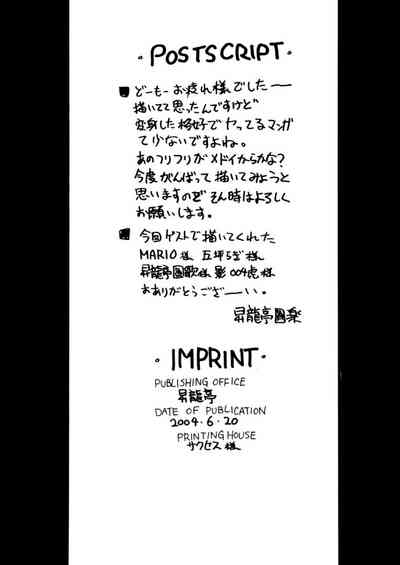 ・POSTSCRIPT・
■どーもーお疲れ様でしたー
描いてて思ったんですけど
変身した格好でヤッてるマンガ
て少ないですよね。
あのフリフリがメドイからかな?
今度がんばって描いてみようと
思いますのでそん時はよろしく
お願いします。
■今回ゲストで描いてくれた
MARIO様 五坪らぎ様
昇龍亭圓歌様 影004虎様
おありがとうござーーい。
昇龍亭圓楽
・IMPRINT・
PUBLISHING OFFICE
昇龍亭
DATE OF PUBLICATION
2004・6・20
PRINTING HOUSE
サクセス様